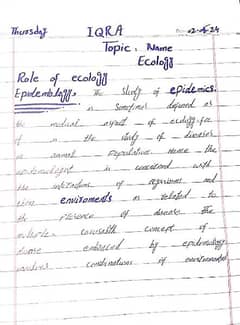 Thursday IQRA 12-4-24
Topic: Name
Ecology
Role of ecology
Epidemology: The Study of epidemics.
is Sometimes defined as
the medical aspect of ecology for
it is the study of diseases
in animal Population Hence the
epidemologist is concerned with
the interactions of organisms and
their enviroments as related to
the presence of disease the
multiple causality concept of
disease embraced by epidemology
involves combinations of enviromental